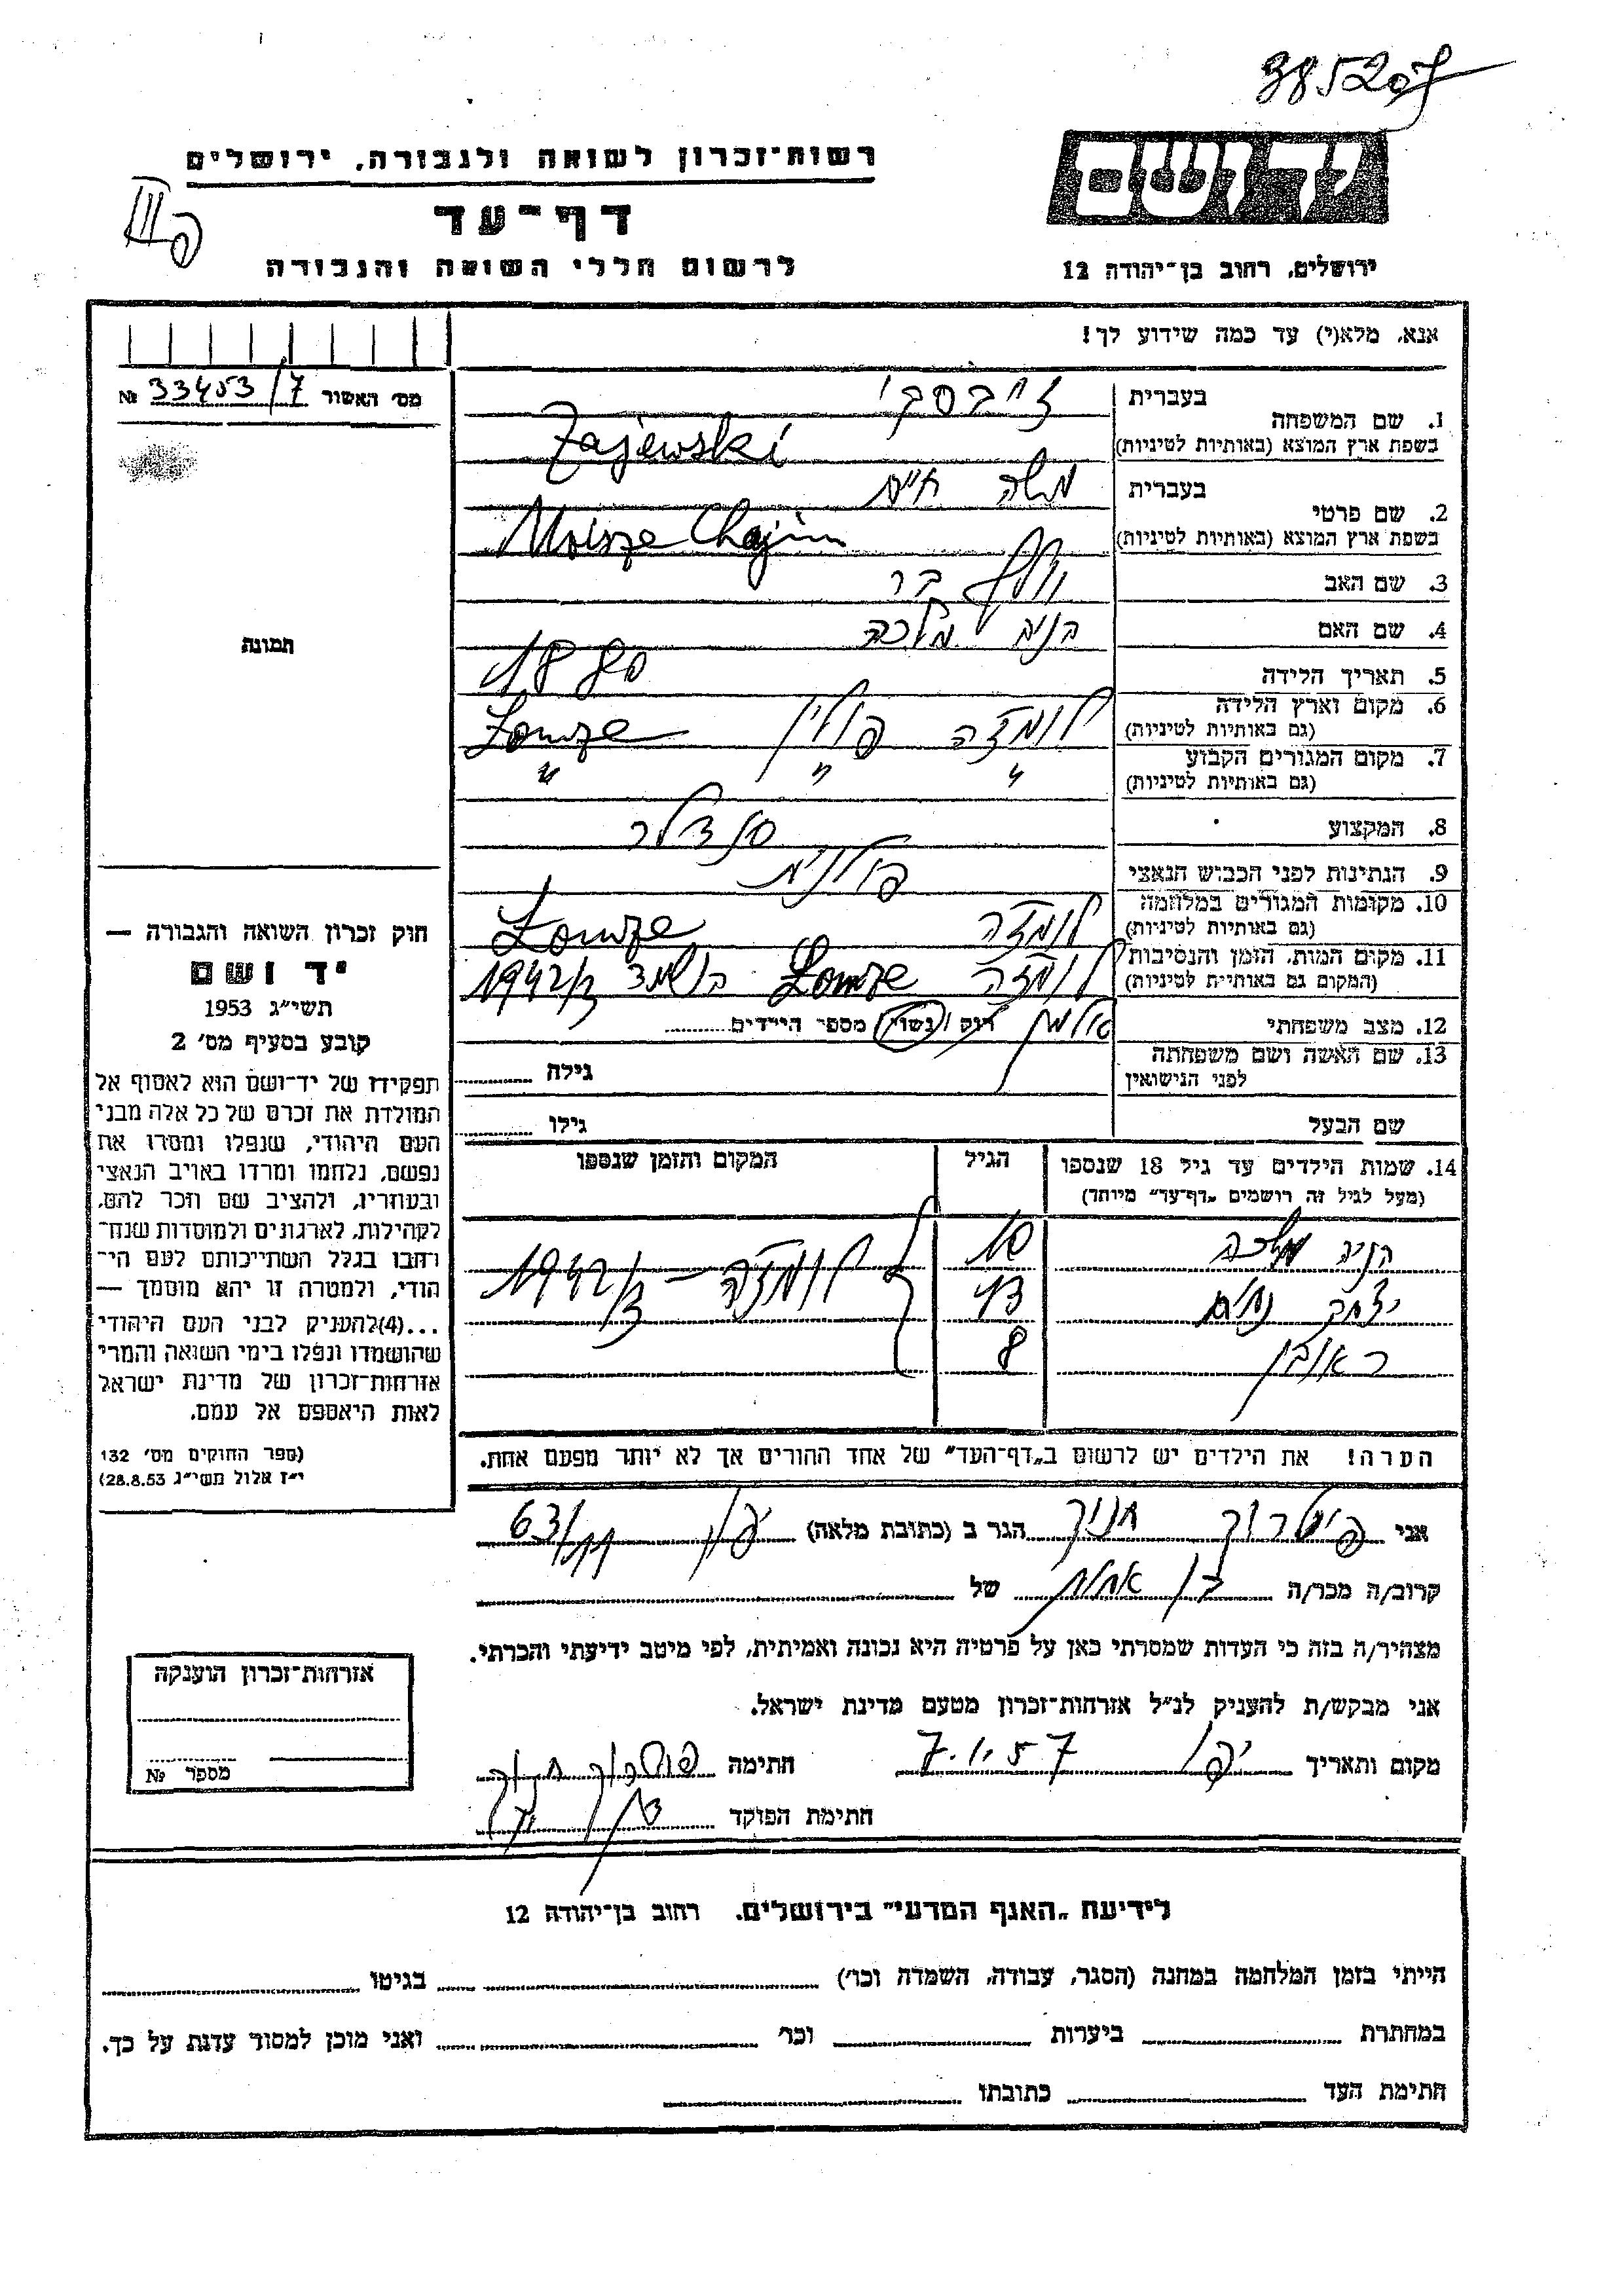 38520
רשות־זכרון לשואה ולגבורה, ירושלים
דף־עד
לרשום חללי השואה והגבורה
III
יד ושם
ירושלים, רחוב בן־יהודה 12
אנא, מלא(י) עד כמה שידוע לך!
מס׳ האשור 33453/7 №
תמונה
1. שם המשפחה
בעברית זייבסקי
בשפת ארץ המוצא (באותיות לטיניות) Zajewski
2. שם פרטי
בעברית משה חיים
בשפת ארץ המוצא (באותיות לטיניות) Moisze Chajim
3. שם האב וולף בר
4. שם האם הניה מלכה
5. תאריך הלידה 1880
6. מקום וארץ הלידה לומזה פולין Łomże
(גם באותיות לטיניות)
7. מקום המגורים הקבוע " " "
(גם באותיות לטיניות)
8. המקצוע סנדלר
9. הנתינות לפני הכבוש הנאצי פולנית
10. מקומות המגורים במלחמה לומזה Łomże
(גם באותיות לטיניות)
11. מקום המות, הזמן והנסיבות לומזה Łomże הושמד 1942/3
(המקום גם באותיות לטיניות)
12. מצב משפחתי אלמן רווק / נשוי / מספר הילדים
13. שם האשה ושם משפחתה גילה
לפני הנישואין
שם הבעל גילו
14. שמות הילדים עד גיל 18 שנספו הגיל המקום והזמן שנספו
(מעל לגיל זה רושמים „דף־עד״ מיוחד)
הניה מלכה 10
יצחק נחום 13 לומזה – 1942/3
ראובן 8
הערה! את הילדים יש לרשום ב„דף־העד״ של אחד ההורים אך לא יותר מפעם אחת.
חוק זכרון השואה והגבורה —
יד ושם
תשי״ג 1953
קובע בסעיף מס׳ 2
תפקידו של יד־ושם הוא לאסוף אל
המולדת את זכרם של כל אלה מבני
העם היהודי, שנפלו ומסרו את
נפשם, נלחמו ומרדו באויב הנאצי
ובעוזריו, ולהציב שם וזכר להם,
לקהילות, לארגונים ולמוסדות שנח־
רבו בגלל השתייכותם לעם הי־
הודי, ולמטרה זו יהא מוסמך —
...(4)להעניק לבני העם היהודי
שהושמדו ונפלו בימי השואה והמרי
אזרחות־זכרון של מדינת ישראל
לאות היאספם אל עמם.
(ספר החוקים מס׳ 132
י״ז אלול תשי״ג 28.8.53)
אני פיטרוך חנוך הגר ב (כתובת מלאה) יפו 63/11
קרוב/ה מכר/ה בן אחות של
מצהיר/ה בזה כי העדות שמסרתי כאן על פרטיה היא נכונה ואמיתית, לפי מיטב ידיעתי והכרתי.
אני מבקש/ת להעניק לנ״ל אזרחות־זכרון מטעם מדינת ישראל.
מקום ותאריך יפו 7.1.57 חתימה
חתימת הפוקד
אזרחות־זכרון הוענקה
מספר №
לידיעת „האגף המדעי״ בירושלים, רחוב בן־יהודה 12
הייתי בזמן המלחמה במחנה (הסגר, עבודה, השמדה וכו׳) בגיטו
במחתרת ביערות וכו׳ ואני מוכן למסור עדות על כך.
חתימת העד כתובתו